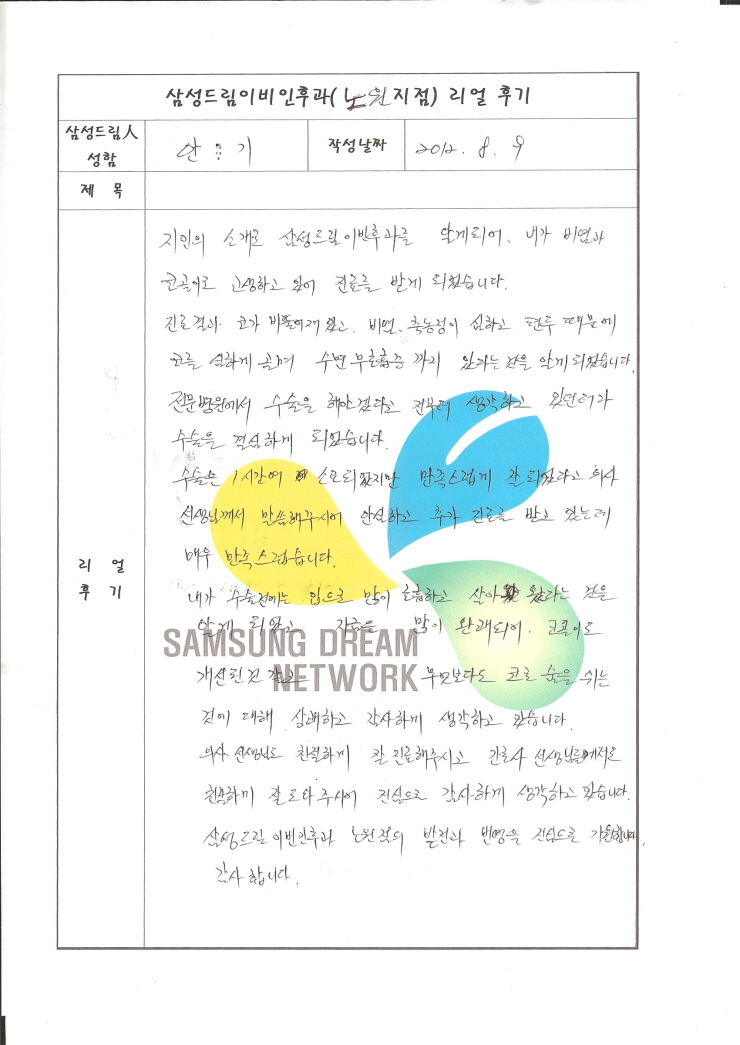 삼성드림이비인후과(노원지점) 리얼 후기
삼성드림人 성함
안 기
작성날짜
2012. 8. 9
제 목
리 얼 후 기
지인의 소개로 삼성드림이빈후과를 알게되어, 내가 비염과
코골이로 고생하고 있어 진료를 받게 되었습니다.
진료결과 코가 비뚤어져있고, 비염, 축농증이 심하고 때문에
코를 심하게 골며 수면 무호흡증 까지 있다는 것을 알게되었습니다.
전문병원에서 수술을 해야겠다고 전부터 생각하고 있던터라
수술을 결심하게 되었습니다.
수술은 1시간여 소요되었지만 만족스럽게 잘 되었다고 의사
선생님께서 말씀해주시어 안심하고 추가 진료를 받고 있는데
매우 만족스럽습니다.
내가 수술전에는 입으로 많이 호흡하고 살아 왔다는 것을
알게 되었고 지금은 많이 완쾌되어, 코골이도
개선된것 같고 무엇보다도 코로 숨을 쉬는
것에 대해 상쾌하고 감사하게 생각하고 있습니다.
의사 선생님도 친절하게 잘 진료해주시고 간호사 선생님들께서도
친절하게 잘 도와주시어 진심으로 감사하게 생각하고 있습니다.
삼성드림이빈인후과 노원점의 발전과 번영을 진심으로 기원합니다
감사합니다.
SAMSUNG DREAM
NETWORK